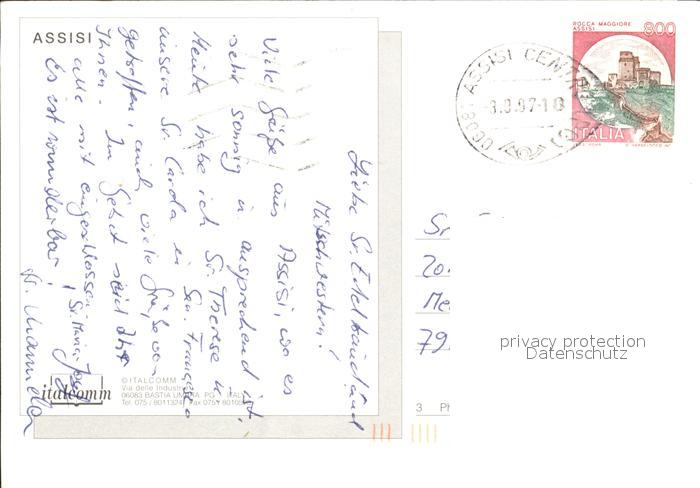 ASSISI
Liebe Sr. Edeltraud und
Mitschwestern!
Viele Grüße aus Assisi, wo es
sehr sonnig u. ansprechend ist.
Heute habe ich Sr. Therese u.
unsere Sr. Carola in San Francesco
getroffen, auch viele Grüße von
Ihnen. Im Gebet seid Ihr
alle mit eingeschlossen, Sr. Maria
Es ist wunderbar!
Sr. Manuela
italcomm
© ITALCOMM
Via delle Industrie
06083 BASTIA UMBRA PG ITALY
Tel. 075 / 8011324 Fax 075 / 80105
ROCCA MAGGIORE
ASSISI
800
ITALIA
06081 ASSISI CENTRO
8.87-18
Sr
20
Me
79
privacy protection
Datenschutz
3 Ph